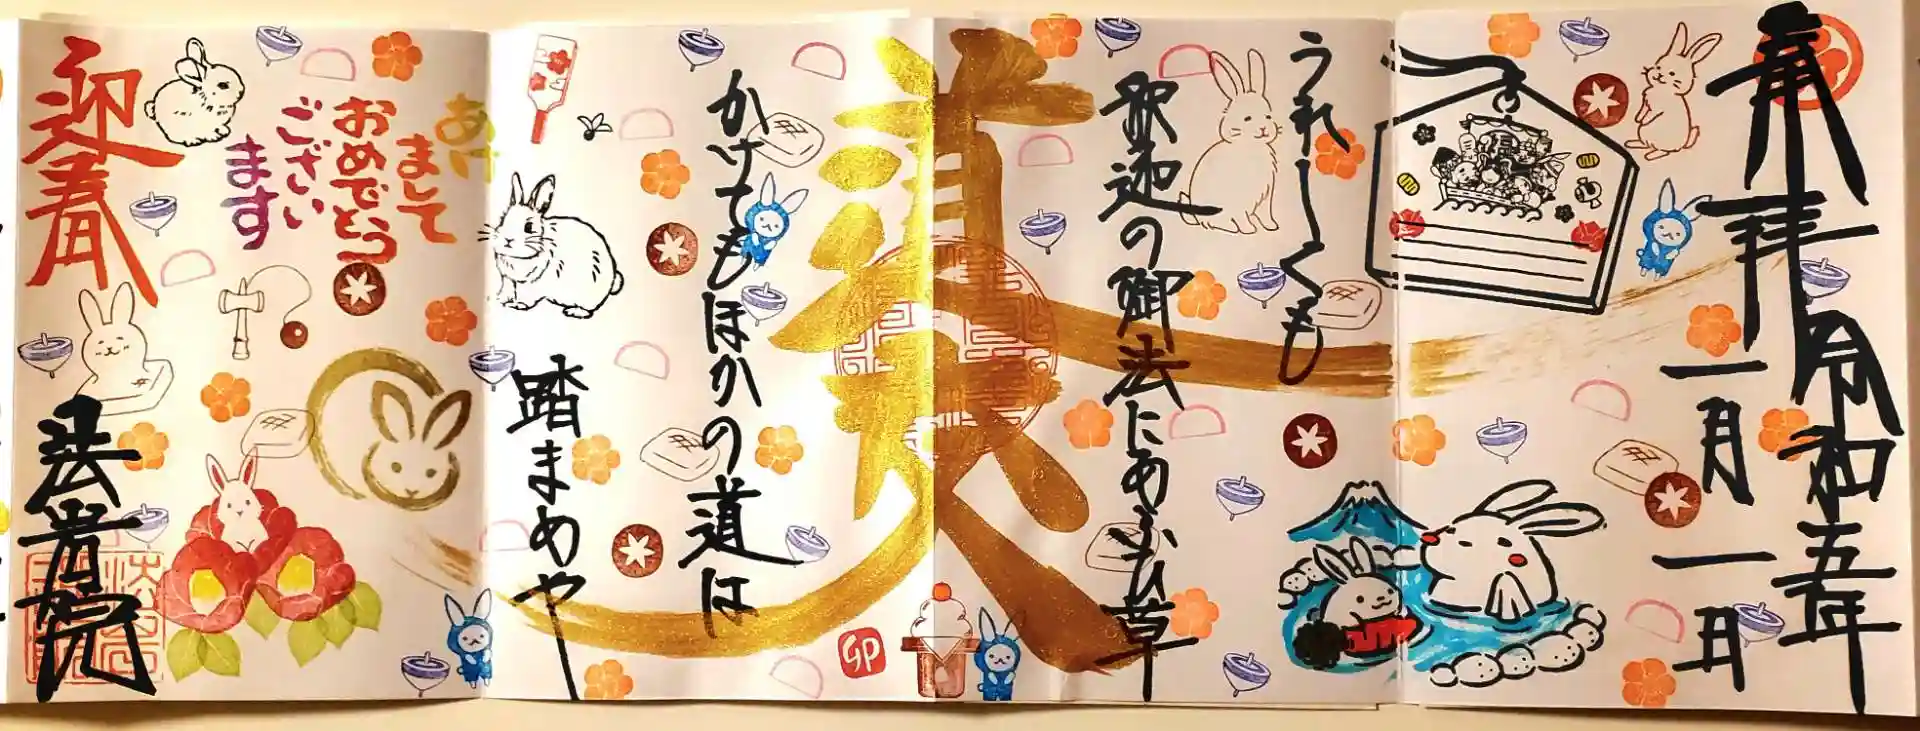 奉拝
令和五年
一月一日
うれしくも
釈迦の御法にあふひ草
かけてもほかの道は
踏まめや
あけ
まして
おめでとう
ござい
ます
迎春
法岩院
GP